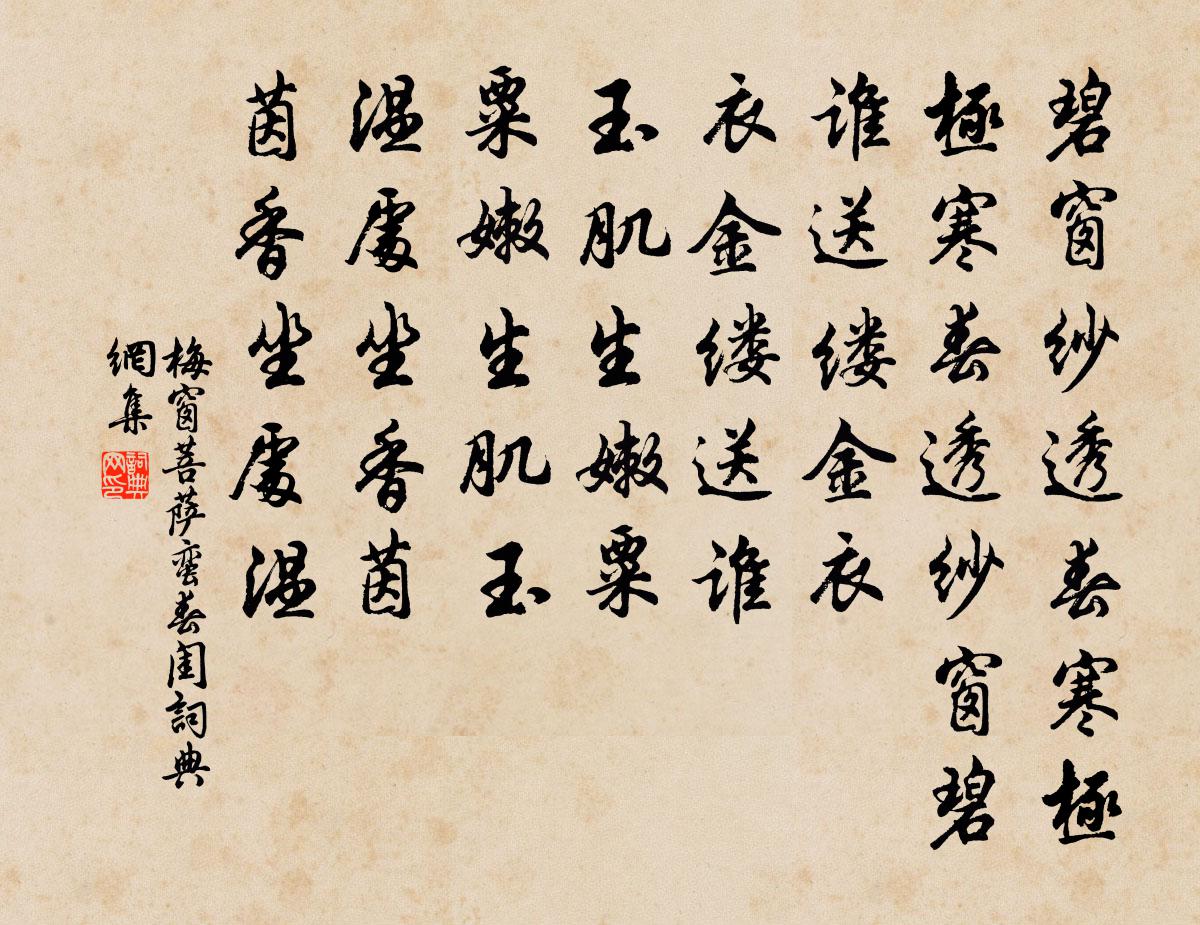 碧窗纱透春寒極
極寒春透纱窗碧
谁送缕金衣
衣金缕送谁
玉肌生嫩粟
粟嫩生肌玉
温處坐香茵
茵香坐處温
梅窗菩萨蛮春閨詞典
網集
詞典网印